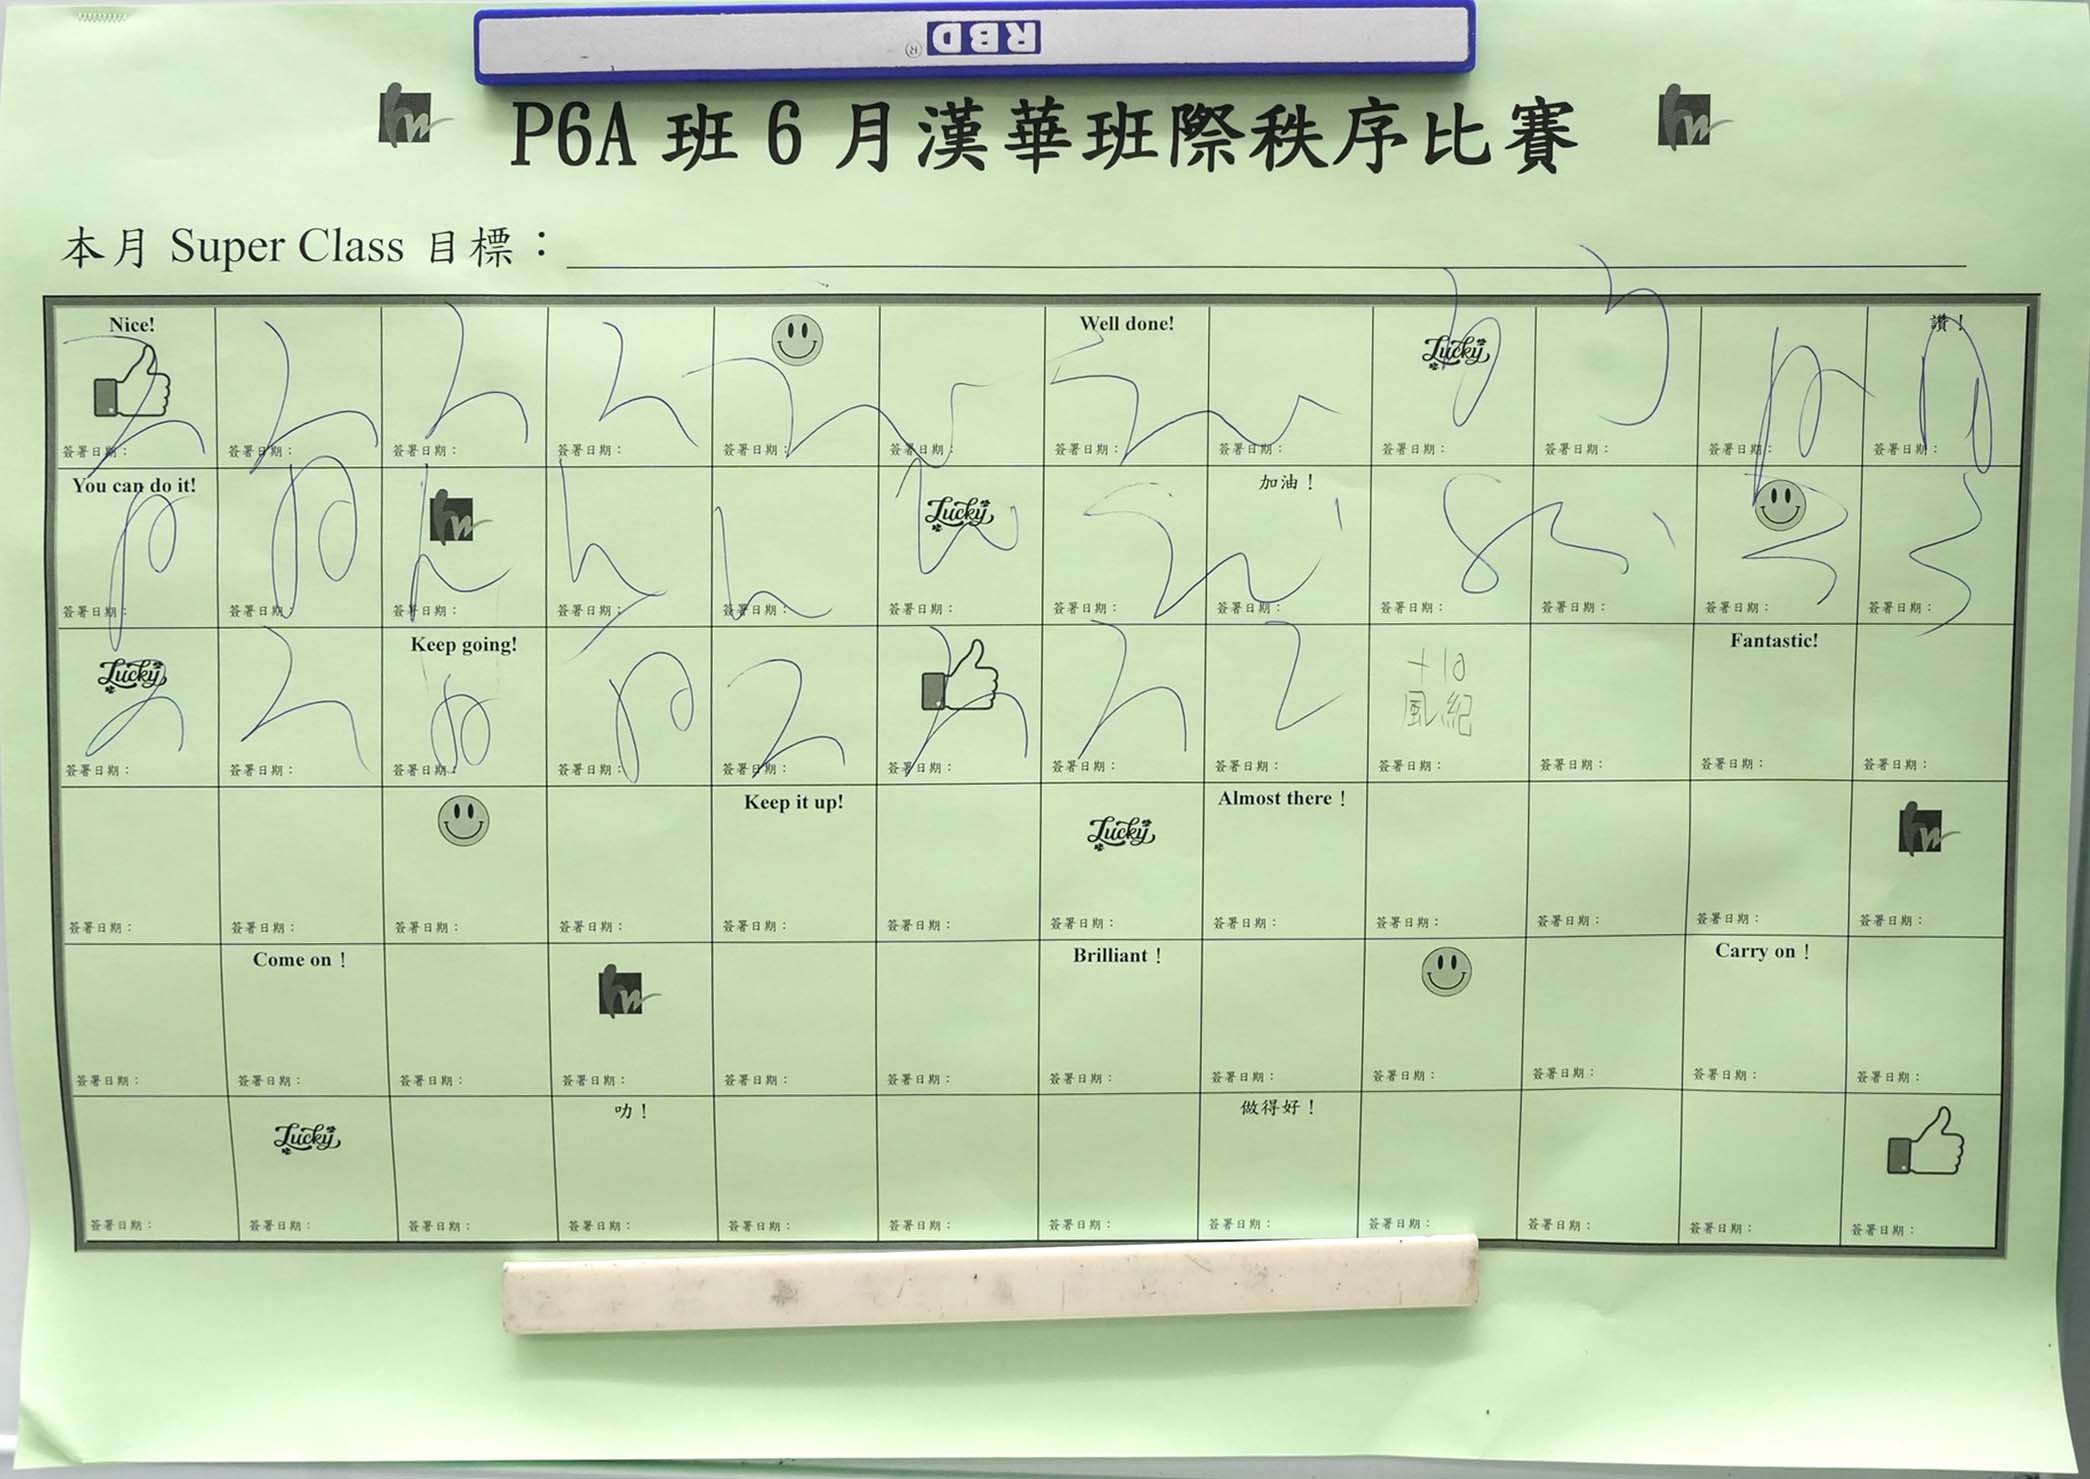 RBD®
P6A 班 6 月漢華班際秩序比賽
本月 Super Class 目標：
Nice! Well done! Lucky 讚！
簽署日期： 簽署日期： 簽署日期： 簽署日期： 簽署日期： 簽署日期： 簽署日期： 簽署日期： 簽署日期： 簽署日期： 簽署日期： 簽署日期：
You can do it! Lucky 加油！
簽署日期： 簽署日期： 簽署日期： 簽署日期： 簽署日期： 簽署日期： 簽署日期： 簽署日期： 簽署日期： 簽署日期： 簽署日期： 簽署日期：
Lucky Keep going! +10 Fantastic!
風紀
簽署日期： 簽署日期： 簽署日期： 簽署日期： 簽署日期： 簽署日期： 簽署日期： 簽署日期： 簽署日期： 簽署日期： 簽署日期： 簽署日期：
Keep it up! Lucky Almost there！
簽署日期： 簽署日期： 簽署日期： 簽署日期： 簽署日期： 簽署日期： 簽署日期： 簽署日期： 簽署日期： 簽署日期： 簽署日期： 簽署日期：
Come on！ Brilliant！ Carry on！
簽署日期： 簽署日期： 簽署日期： 簽署日期： 簽署日期： 簽署日期： 簽署日期： 簽署日期： 簽署日期： 簽署日期： 簽署日期： 簽署日期：
Lucky 叻！ 做得好！
簽署日期： 簽署日期： 簽署日期： 簽署日期： 簽署日期： 簽署日期： 簽署日期： 簽署日期： 簽署日期： 簽署日期： 簽署日期： 簽署日期：